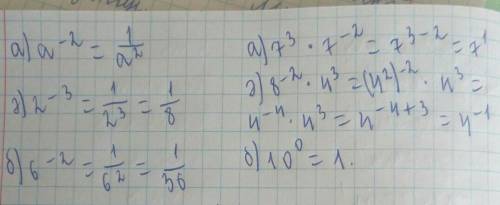 а) a⁻² = 1/a²
д) 2⁻³ = 1/2³ = 1/8
б) 6⁻² = 1/6² = 1/36
а) 7³ · 7⁻² = 7³⁻² = 7¹
д) 8⁻² · 4³ = (4²)⁻² · 4³ =
4⁻⁴ · 4³ = 4⁻⁴⁺³ = 4⁻¹
б) 10⁰ = 1.